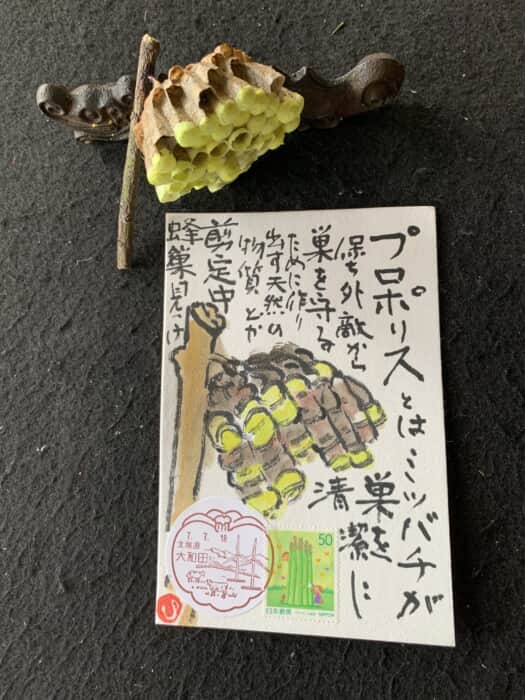 プロポリスとはミツバチが
巣を
清潔に
保ち外敵から
巣を守る
ために作り
出す天然の
物質とか
剪定中
蜂巣見っけ
7.7.18
北海道
大和田
50
日本郵便
NIPPON